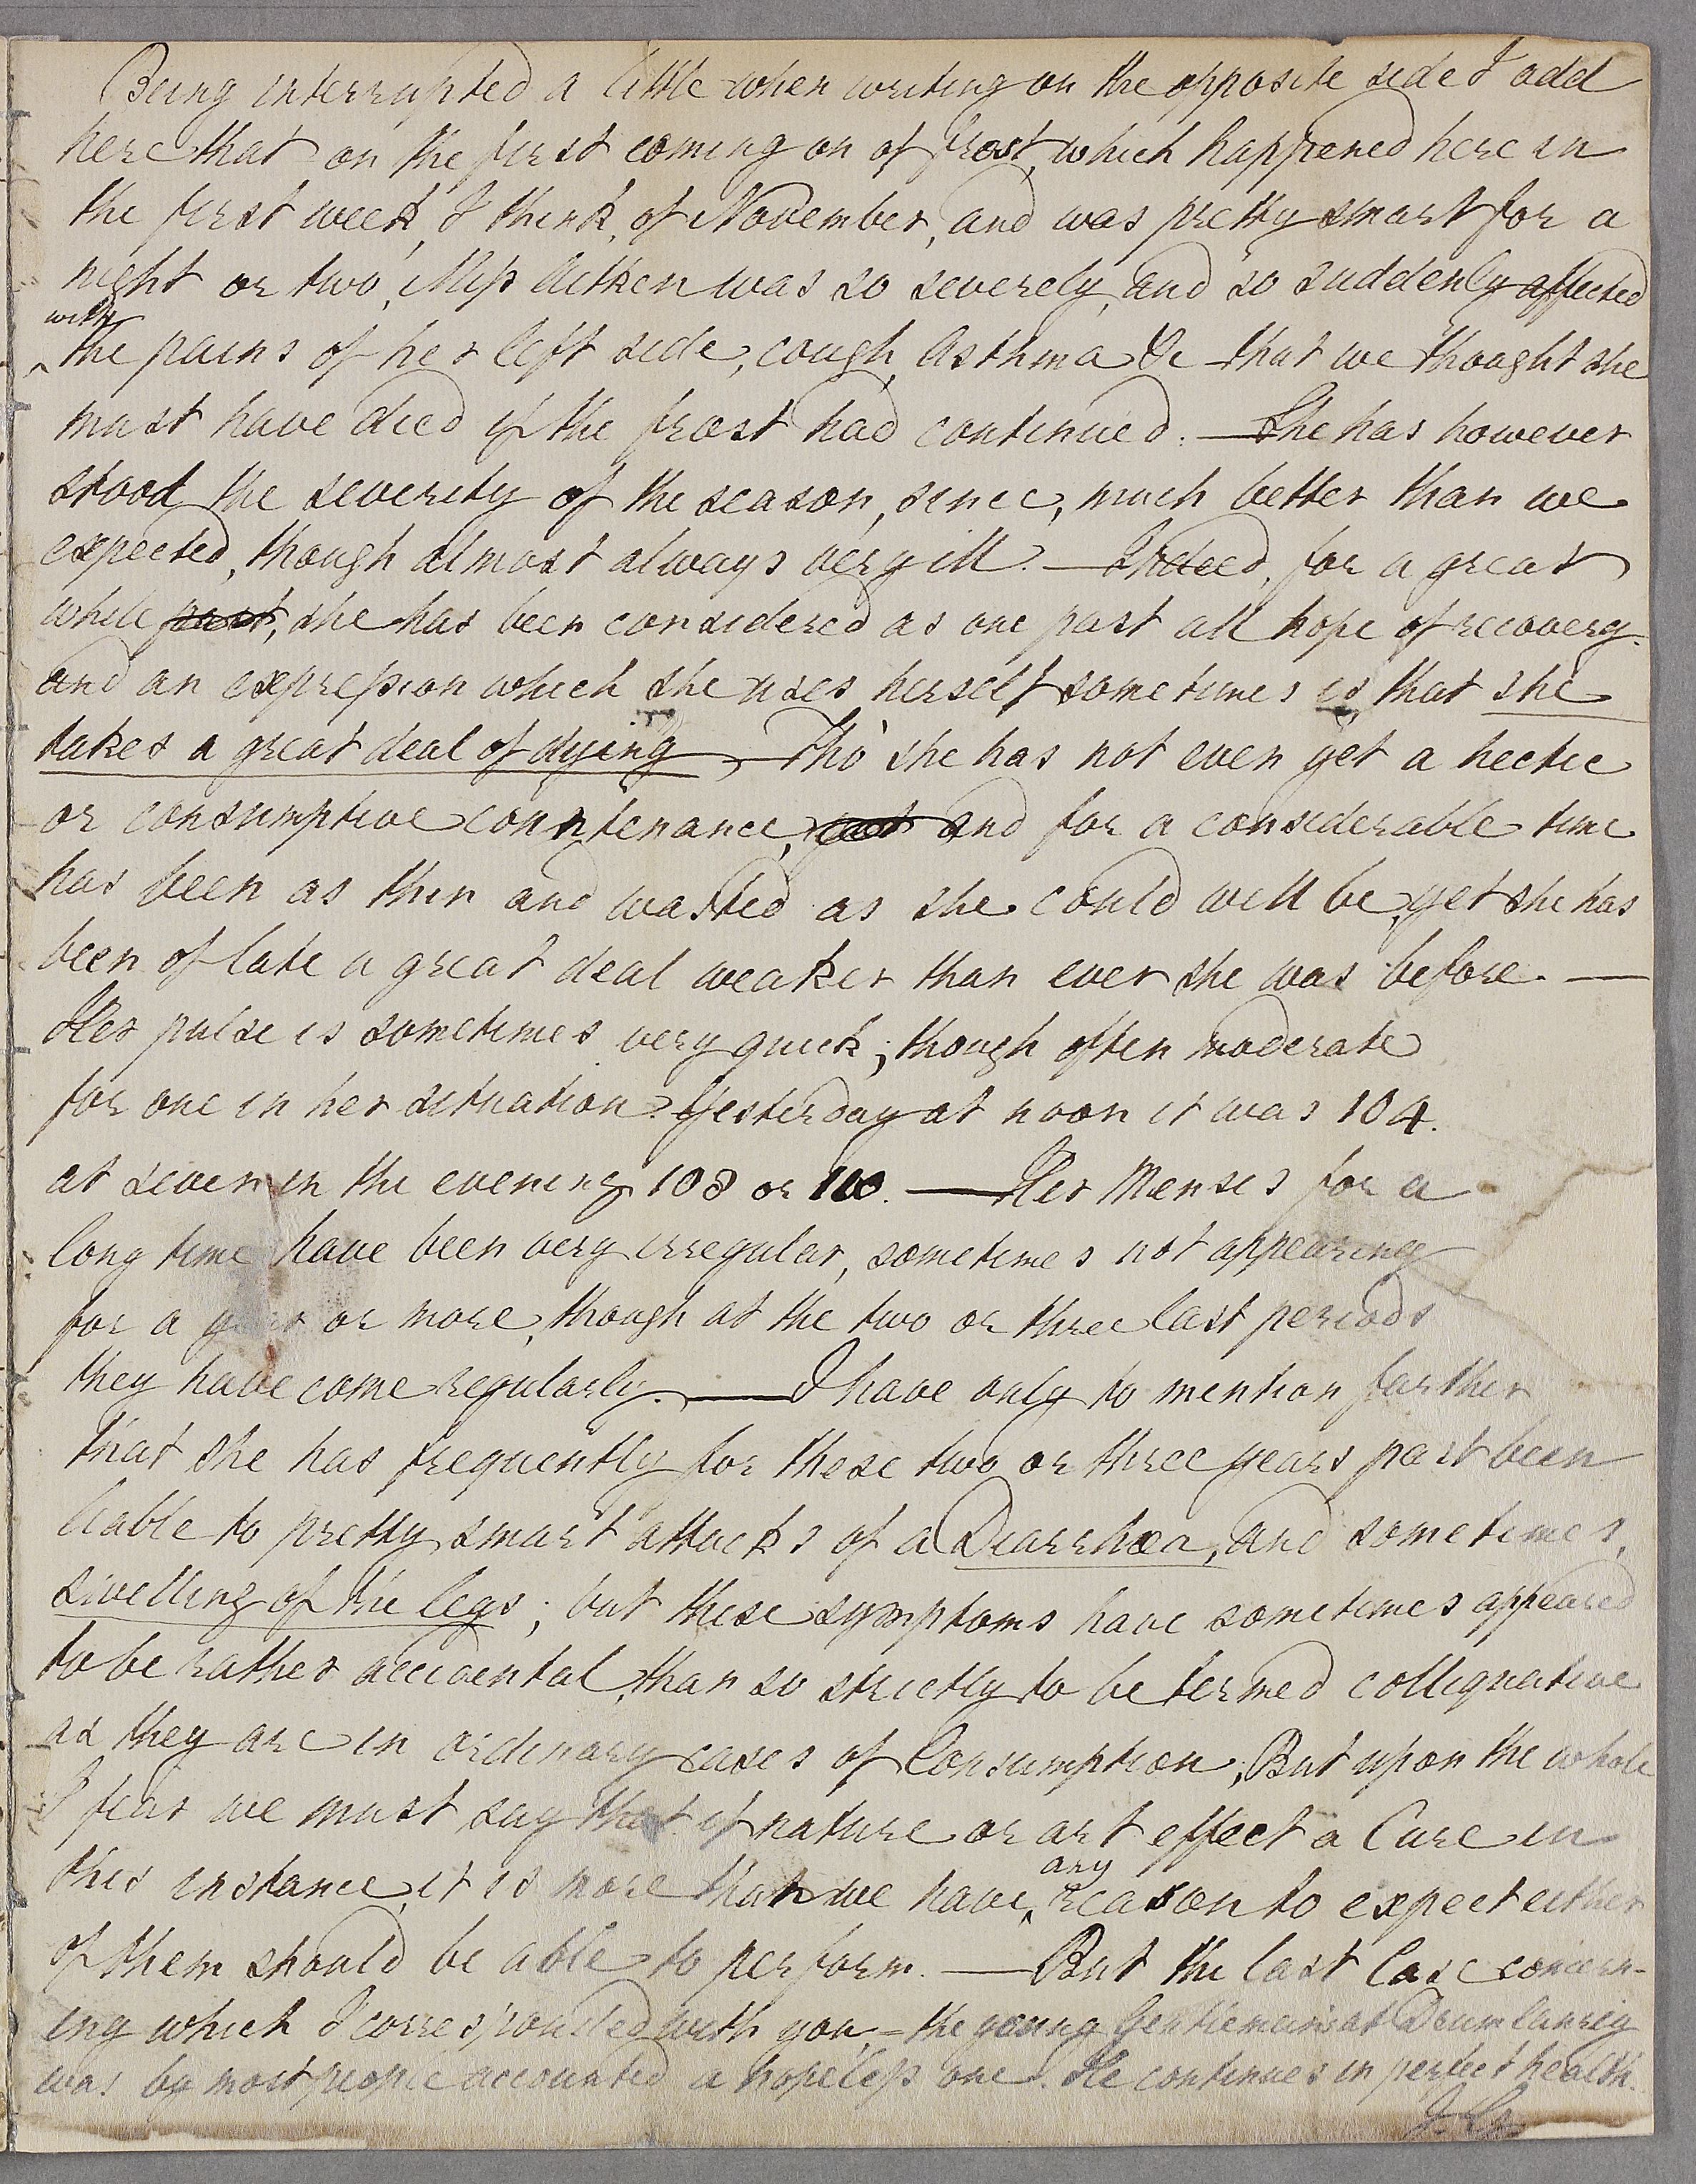 Being interrupted a little when writing on the opposite side I add
here that on the first coming on of frost, which happened here in
the first week, I think, of November, and was pretty smart for a
night or two, Miss Aitken was so severely, and so suddenly affected
with
the pains of her left side, cough, Asthma &c that we thought she
must have died if the frost had continued. — She has however
stood the severity of the season, since, much better than we
expected, though almost always very ill. — Indeed, for a great
while past, she has been considered as one past all hope of recovery.
and an expression which she uses herself sometimes is, that she
takes a great deal of dying — Tho' she has not even yet a hectic
or consumptive countenance, yet and for a considerable time
has been as thin and wasted as she could well be, yet she has
been of late a great deal weaker than ever she was before. —
Her pulse is sometimes very quick; though often moderate
for one in her situation. Yesterday at noon it was 104.
at seven in the evening 108 or 110. — Her Menses for a
long time have been very irregular, sometimes not appearing
for a year or more, though at the two or three last periods
they have come regularly. — I have only to mention farther
that she has frequently for these two or three years past been
liable to pretty smart attacks of a Diarrhœa, and sometimes,
swelling of the legs; but these symptoms have sometimes appeared
to be rather accidental, than so strictly to be termed colliquative
as they are in ordinary cases of Consumption; But upon the whole
I fear we must say that if nature or art effect a Cure in
any
this instance, it is more than we have reason to expect either
of them should be able to perform. — But the last Case concern-
ing which I corresponded with you – the young Gentleman's at Drumlanrig
was by most people accounted a hopeless one. He continues in perfect health.